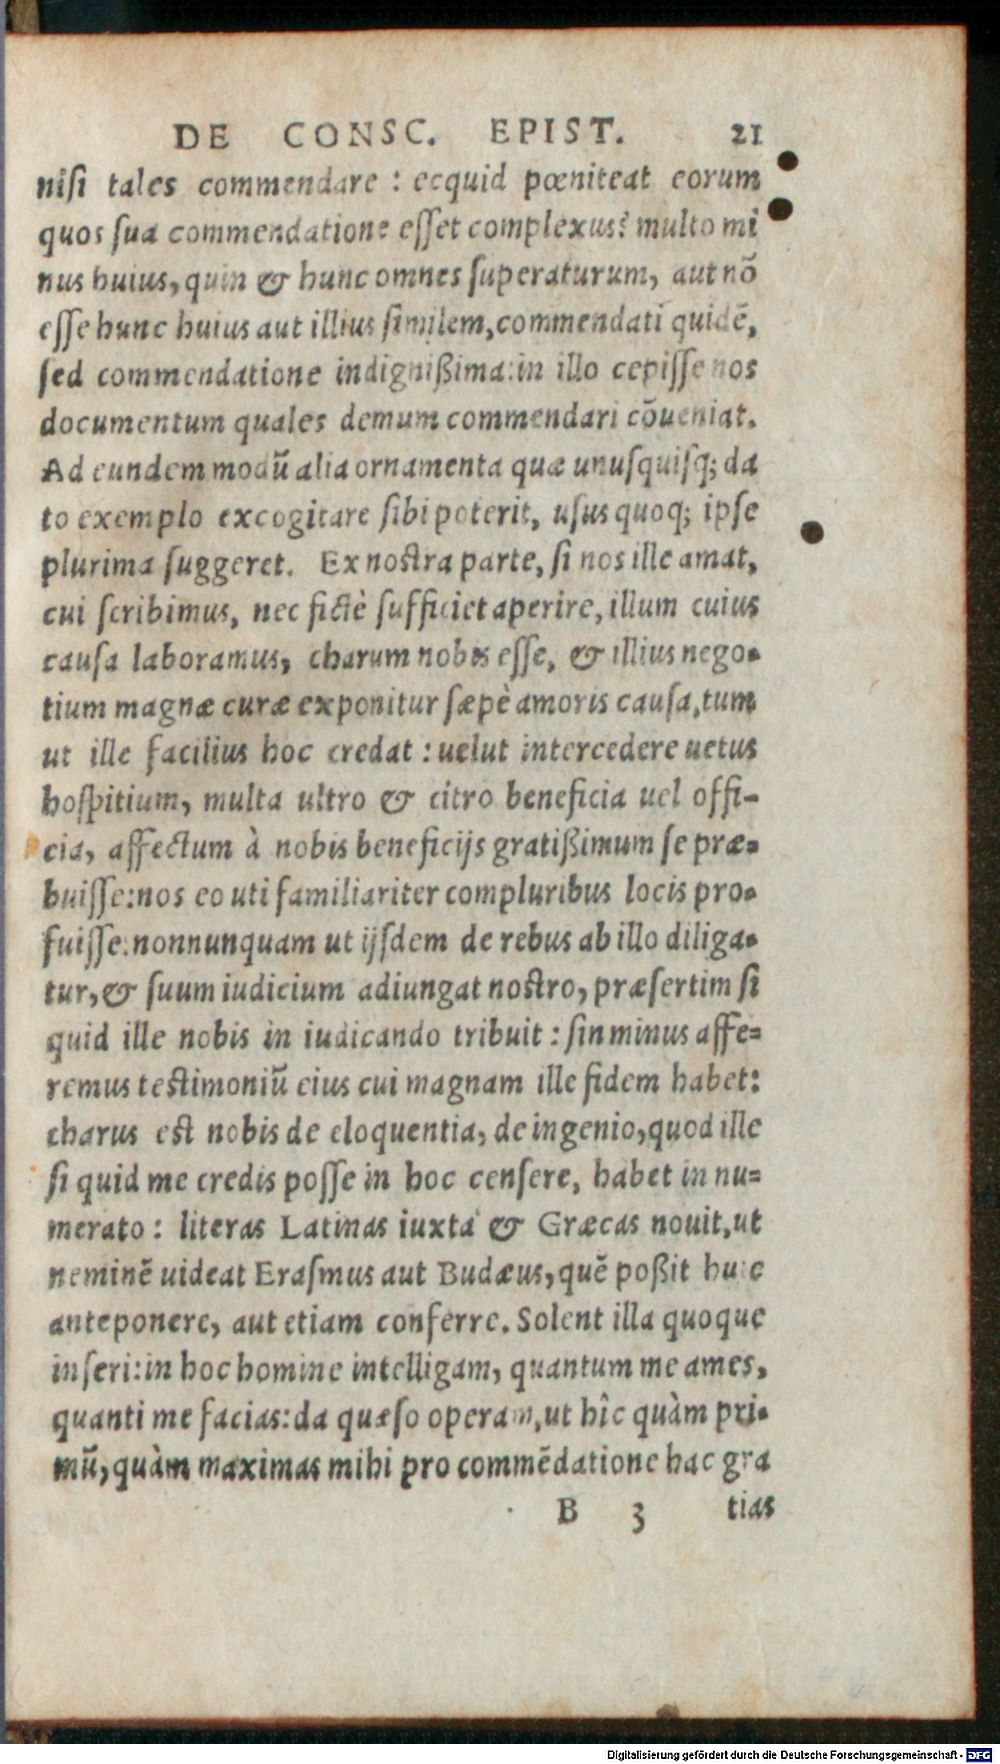 DE CONSC. EPIST. 21
nisi tales commendare : ecquid pœniteat eorum
quos sua commendatione esset complexus? multo mi
nus huius, quin & hunc omnes superaturum, aut nō
esse hunc huius aut illius similem, commendati quidē,
sed commendatione indignißima: in illo cepisse nos
documentum quales demum commendari cōueniat.
Ad eundem modū alia ornamenta quæ unusquisq; da
to exemplo excogitare sibi poterit, usus quoq; ipse
plurima suggeret. Ex nostra parte, si nos ille amat,
cui scribimus, nec fictè sufficiet aperire, illum cuius
causa laboramus, charum nobis esse, & illius nego-
tium magnæ curæ exponitur sæpè amoris causa, tum
ut ille facilius hoc credat : uelut intercedere uetus
hospitium, multa ultro & citro beneficia uel offi-
cia, affectum à nobis beneficijs gratißimum se præ-
buisse: nos eo uti familiariter compluribus locis pro-
fuisse: nonnunquam ut ijsdem de rebus ab illo diliga-
tur, & suum iudicium adiungat nostro, præsertim si
quid ille nobis in iudicando tribuit : sin minus affe-
remus testimoniū eius cui magnam ille fidem habet:
charus est nobis de eloquentia, de ingenio, quod ille
si quid me credis posse in hoc censere, habet in nu-
merato : literas Latinas iuxta & Græcas nouit, ut
neminē uideat Erasmus aut Budæus, quē poßit huic
anteponere, aut etiam conferre. Solent illa quoque
inseri: in hoc homine intelligam, quantum me ames,
quanti me facias: da quæso operam, ut hîc quàm pri-
mū, quàm maximas mihi pro commēdatione hac gra
B 3 tias
Digitalisierung gefördert durch die Deutsche Forschungsgemeinschaft - DFG